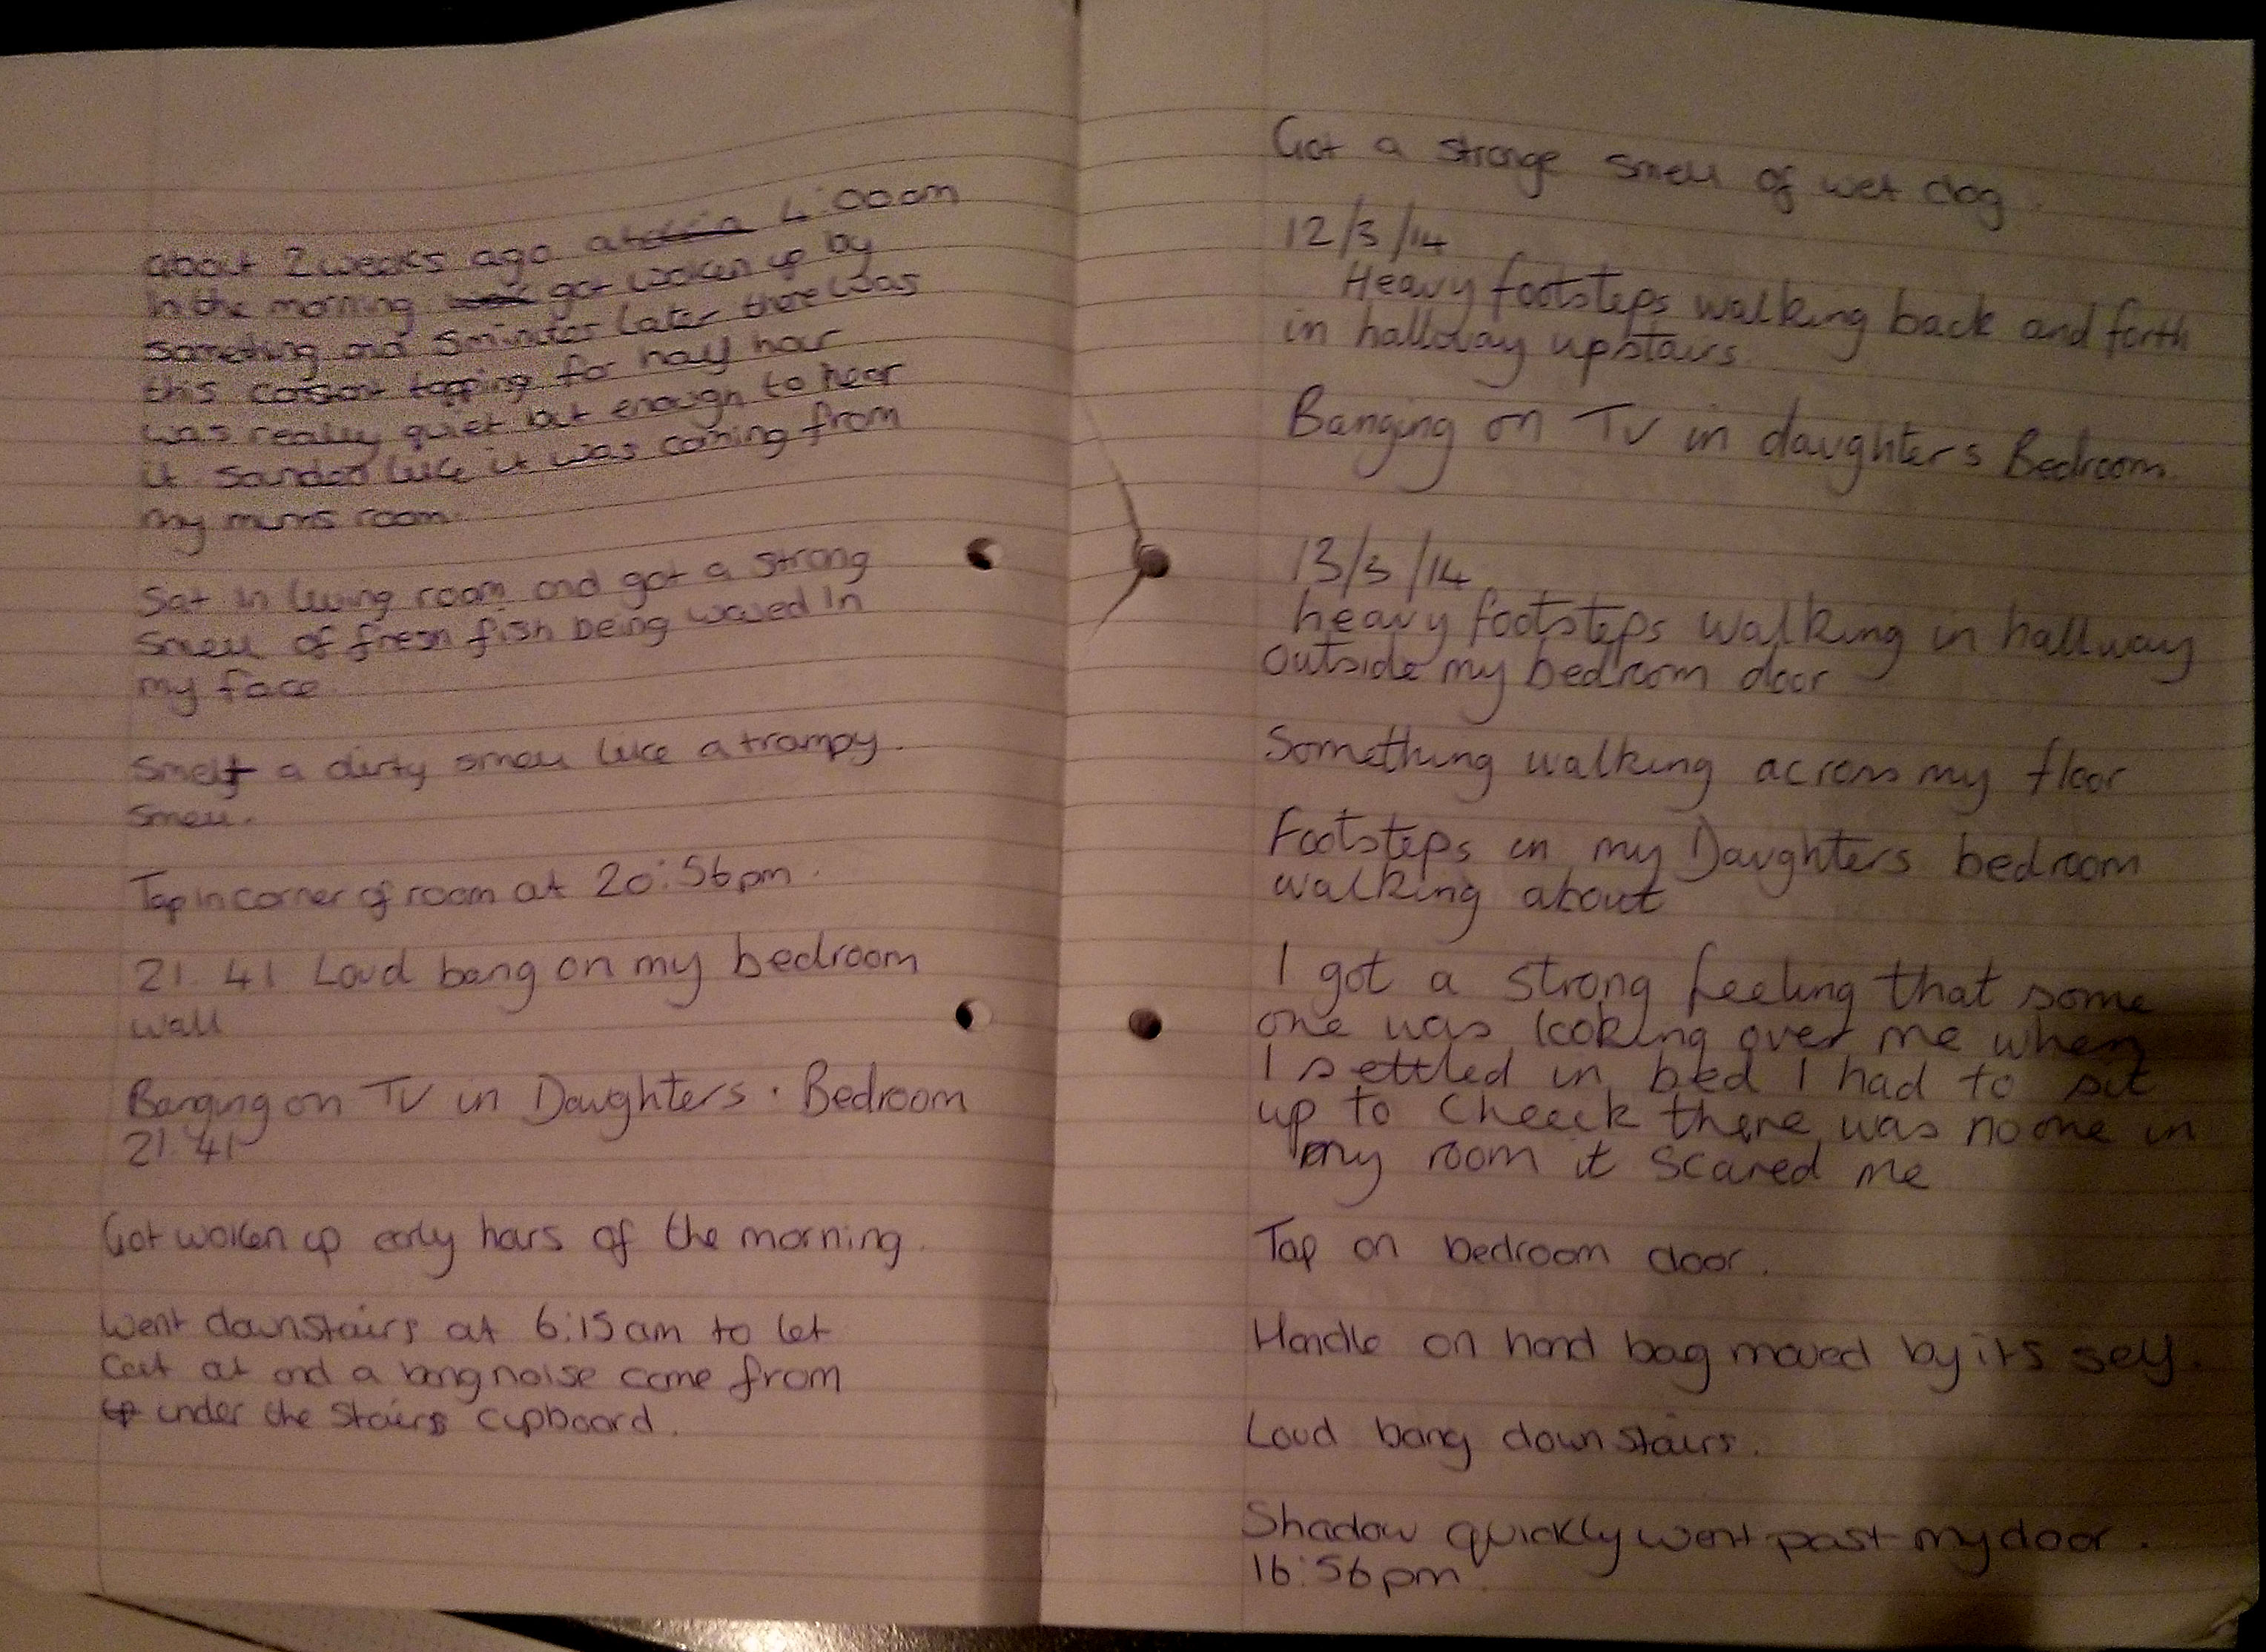 about 2 weeks ago at 4:00am
in the morning got woken up by
something and 5minutes later there was
this constant tapping for half hour
was really quiet but enough to hear
it sounded like it was coming from
my mums room.
Sat in living room and got a strong
smell of fresh fish being waved in
my face.
Smelt a dirty smell like a trampy
smell.
Tap in corner of room at 20:56pm.
21.41 Loud bang on my bedroom
wall
Banging on TV in Daughters. Bedroom
21.41
Got woken up early hours of the morning.
Went downstairs at 6:15am to let
cat out and a bang noise came from
under the stairs cupboard.
Got a strange smell of wet dog.
12/3/14
Heavy footsteps walking back and forth
in hallway upstairs.
Banging on TV in daughters Bedroom.
13/3/14
heavy footsteps walking in hallway
outside my bedroom door
Something walking across my floor
Footsteps in my Daughters bedroom
walking about
I got a strong feeling that some
one was looking over me when
I settled in bed I had to sit
up to cheeck there was no one in
my room it scared me
Tap on bedroom door.
Handle on hand bag moved by its self.
Loud bang down stairs.
Shadow quickly went past my door.
16:56pm.